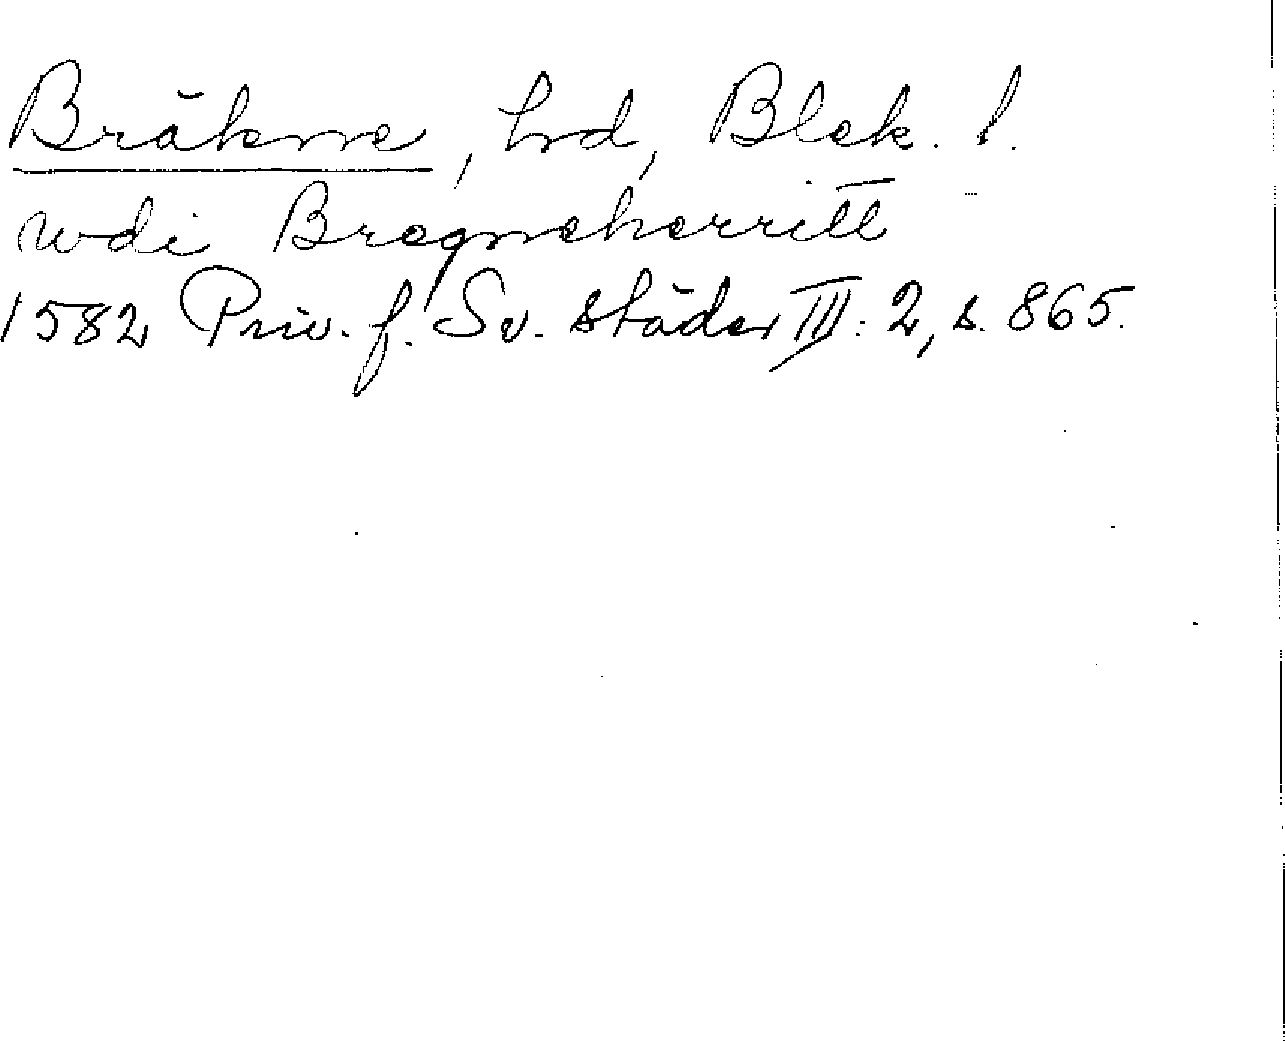 Bräkne, hrd, Blek. l.
wdi Bregneherritt
1582 Priv. f. Sv. städer III: 2, s. 865.